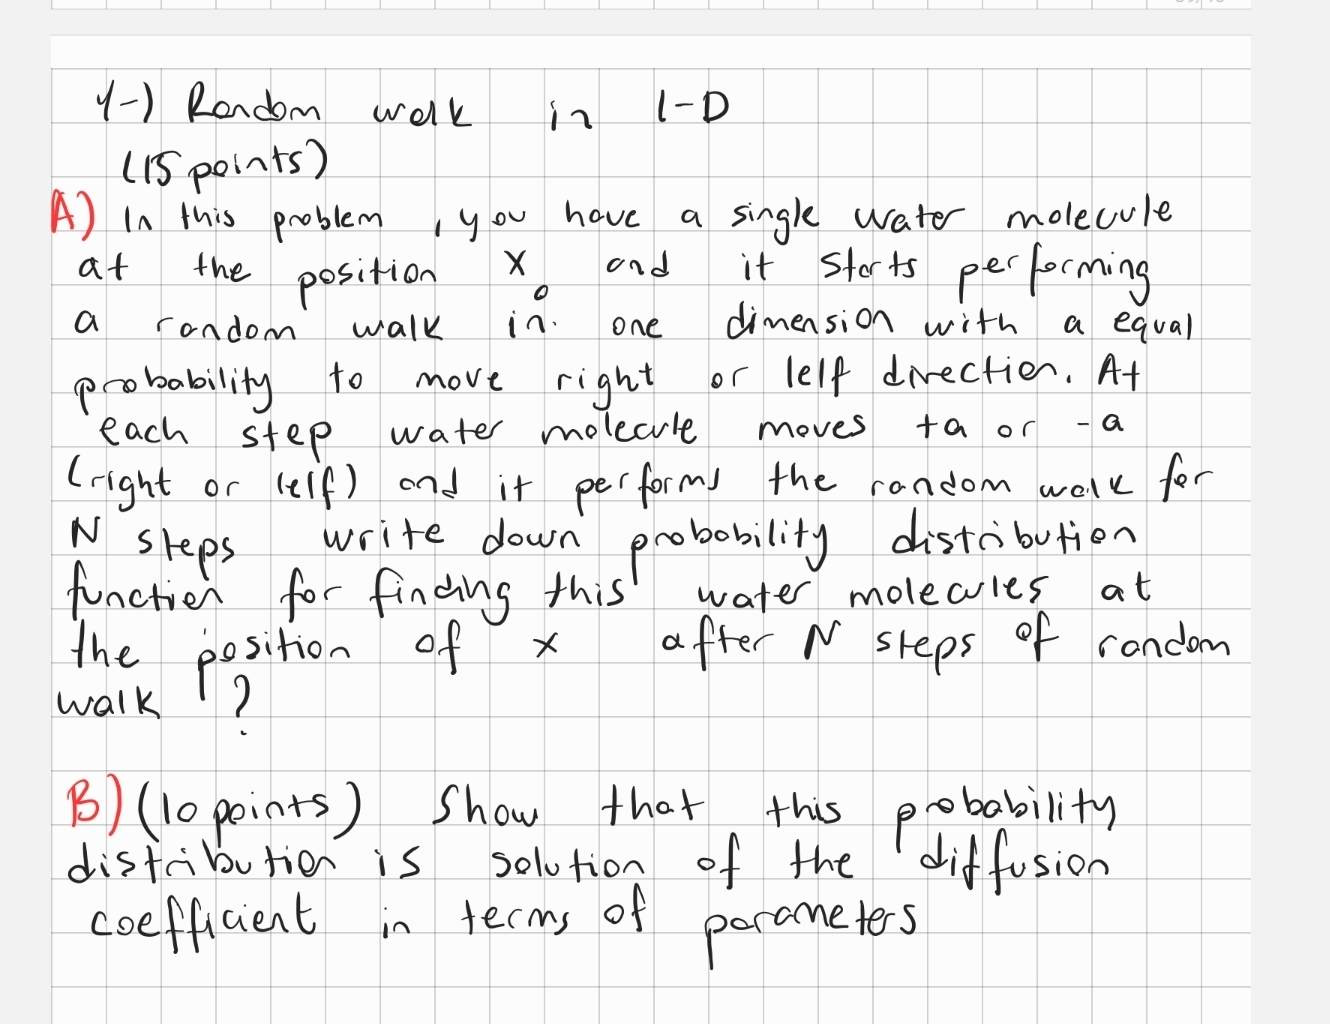 4-) Random walk in 1-D
(15 points)
A) In this problem, you have a single water molecule
at the position x₀ and it starts performing
a random walk in one dimension with a equal
probability to move right or lelf direction. At
each step water molecule moves +a or -a
(right or lelf) and it performs the random walk for
N steps write down probability distribution
function for finding this water molecules at
the position of x after N steps of random
walk ?
B) (10 points) Show that this probability
distribution is solution of the diffusion
coefficient in terms of parameters